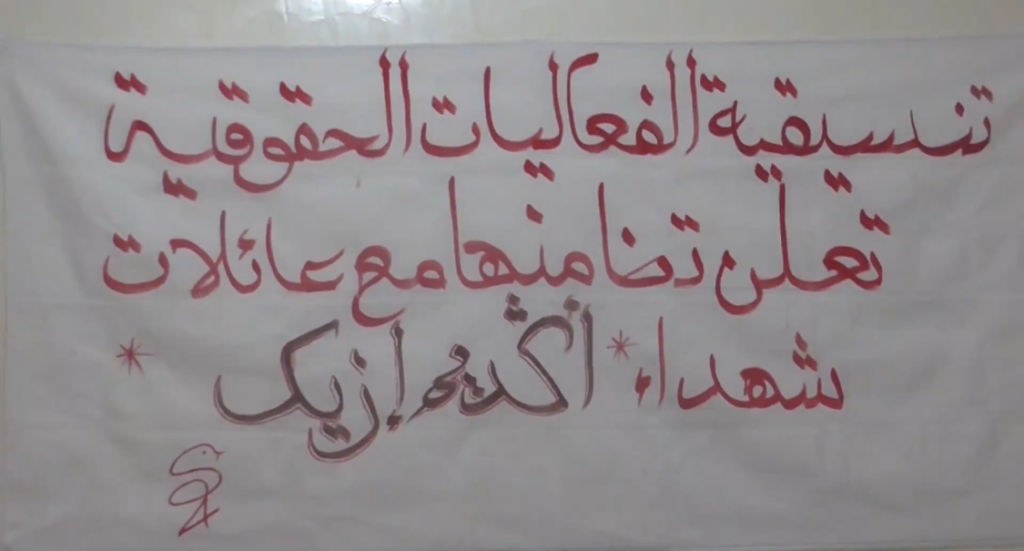 تنسيقية الفعاليات الحقوقية
تعلن تضامنها مع عائلات
شهداء * اكديم إزيك *